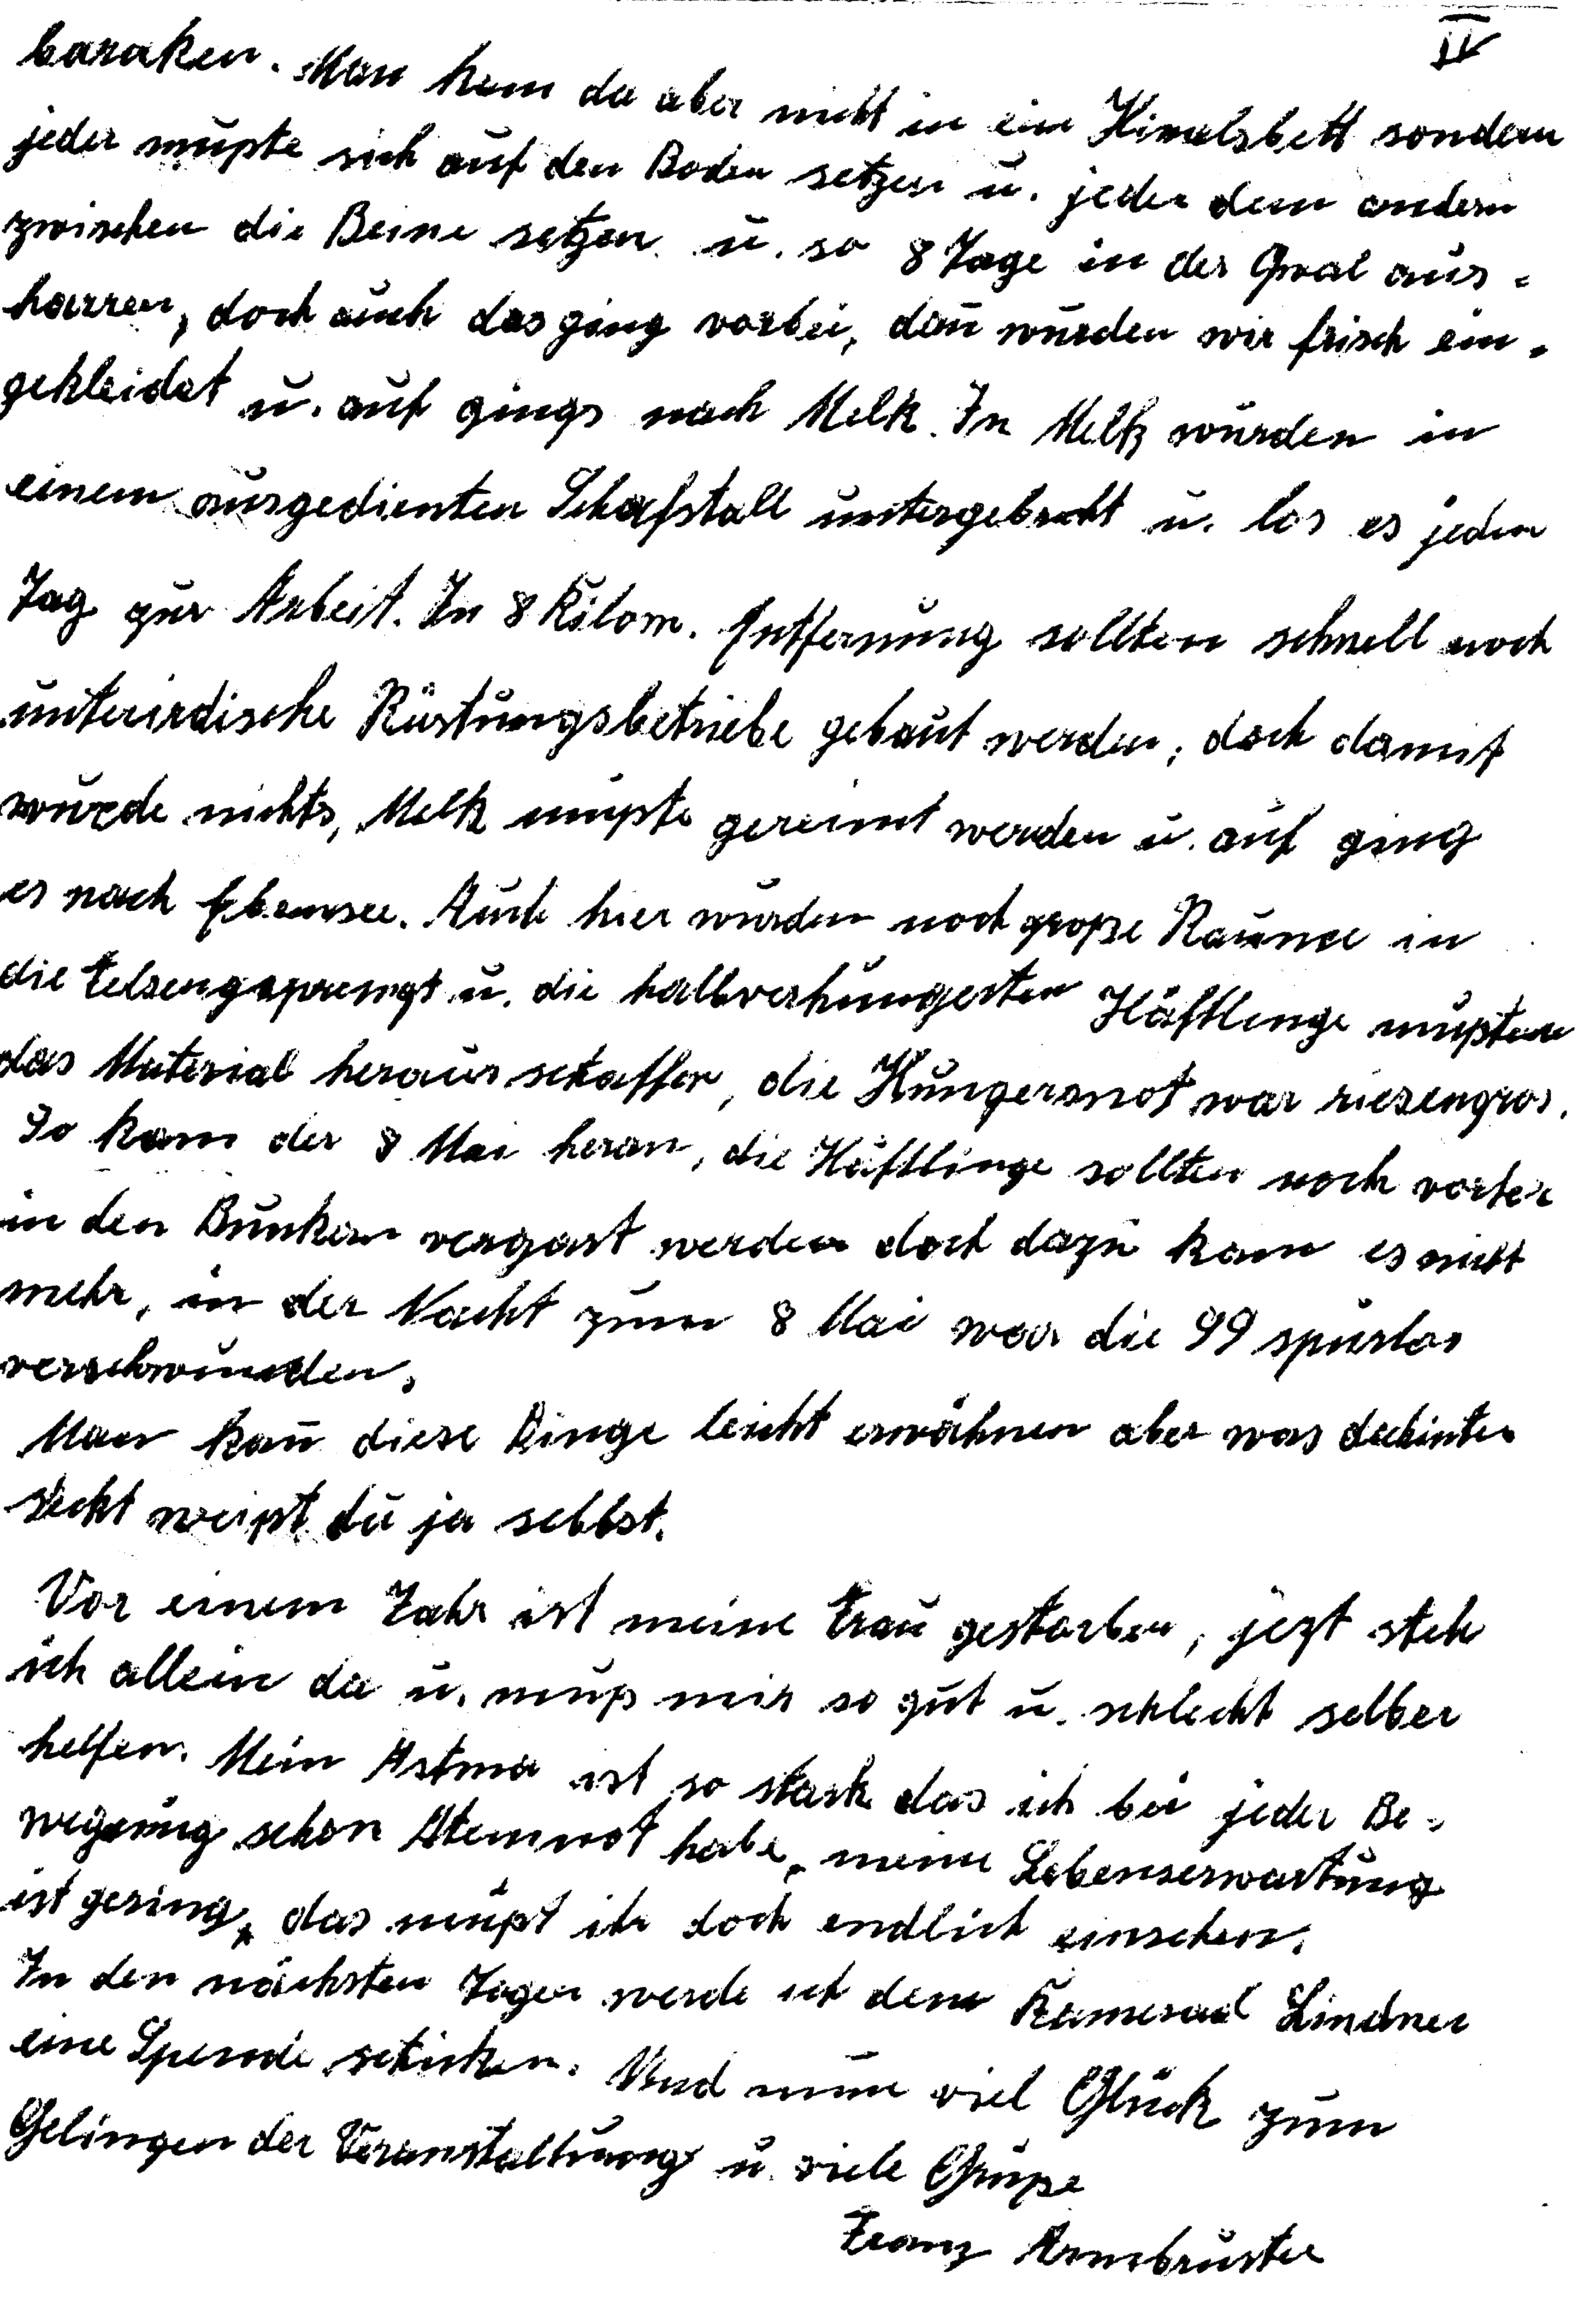 IV
baraken. Man kam da aber nicht in ein Himelsbett sondern
jeder mußte sich auf den Boden setzen u. jeder dem andern
zwischen die Beine setzen u. so 8 Tage in der Qual aus-
harren, doch auch das ging vorbei, dan̄ wurden wir frisch ein-
gekleidet u. auf gings nach Melk. In Melk wurden in
einem ausgedienten Schafstall untergebracht u. los es jeden
Tag zur Arbeit. In 8 Kilom. Entfernung sollten schnell noch
unterirdische Rüstungsbetriebe gebaut werden, doch damit
wurde nichts, Melk mußte gereimt werden u. auf ging
es nach Ebensee. Auch hier wurden noch große Räume in
die Felsen gesprengt u. die halbverhungerten Häftlinge mußten
das Material heraus schaffen, die Hungersnot war riesengros.
So kam der 8 Mai heran, die Häftlinge sollten noch vorher
in den Bunkern vergast werden doch dazu kam es nicht
mehr, in der Nacht zum 8 Mai war die SS spurlos
verschwunden.
Man kan̄ diese Dinge leicht erwähnen aber was dahinter
steckt weißt du ja selbst.
Vor einem Jahr ist meine Frau gestorben, jezt steh
ich allein da u. muß mir so gut u. schlecht selber
helfen. Mein Astma ist so stark das ich bei jeder Be-
wegung schon Atemnot habe, meine Lebenserwartung
ist gering, das müßt ihr doch endlich einsehen.
In den nächsten Tagen werde ich dem Kamerad Lindner
eine Spende schicken. Und nun viel Glück zum
Gelingen der Veranstaltung u. viele Grüße
Franz Armbruster